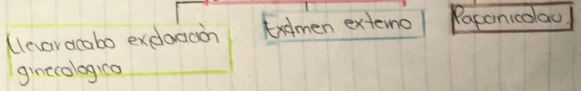 Llevar acabo exploración
ginecologica
Exámen externo
Papanicolau